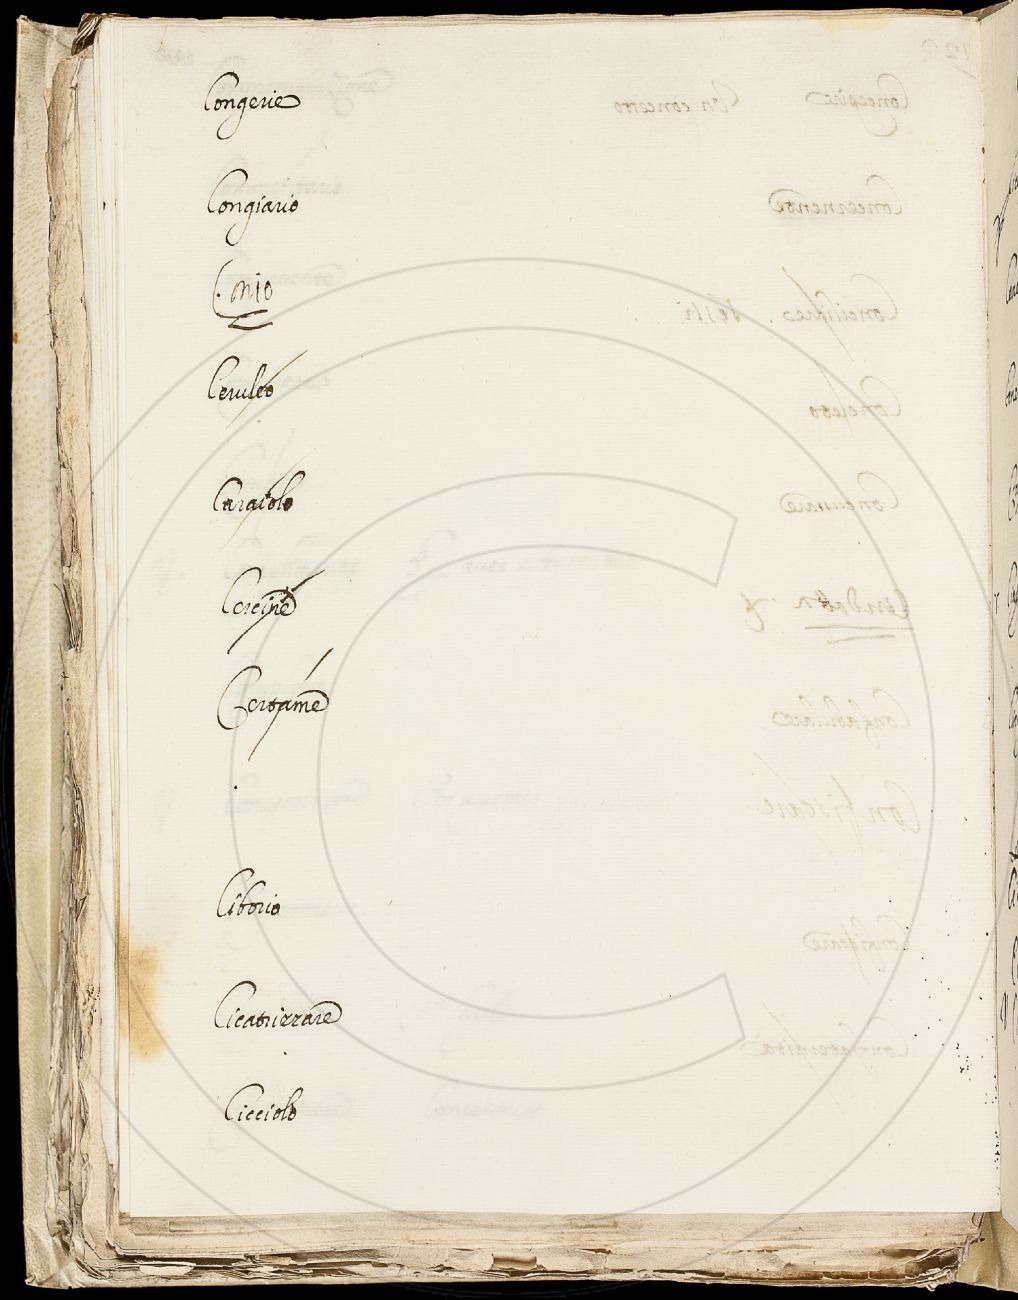 Congerie
Congiario
Conio
Ceruleo
Caratolo
Cereine
Certame
Ciborio
Cicatrizzare
Cicciolo